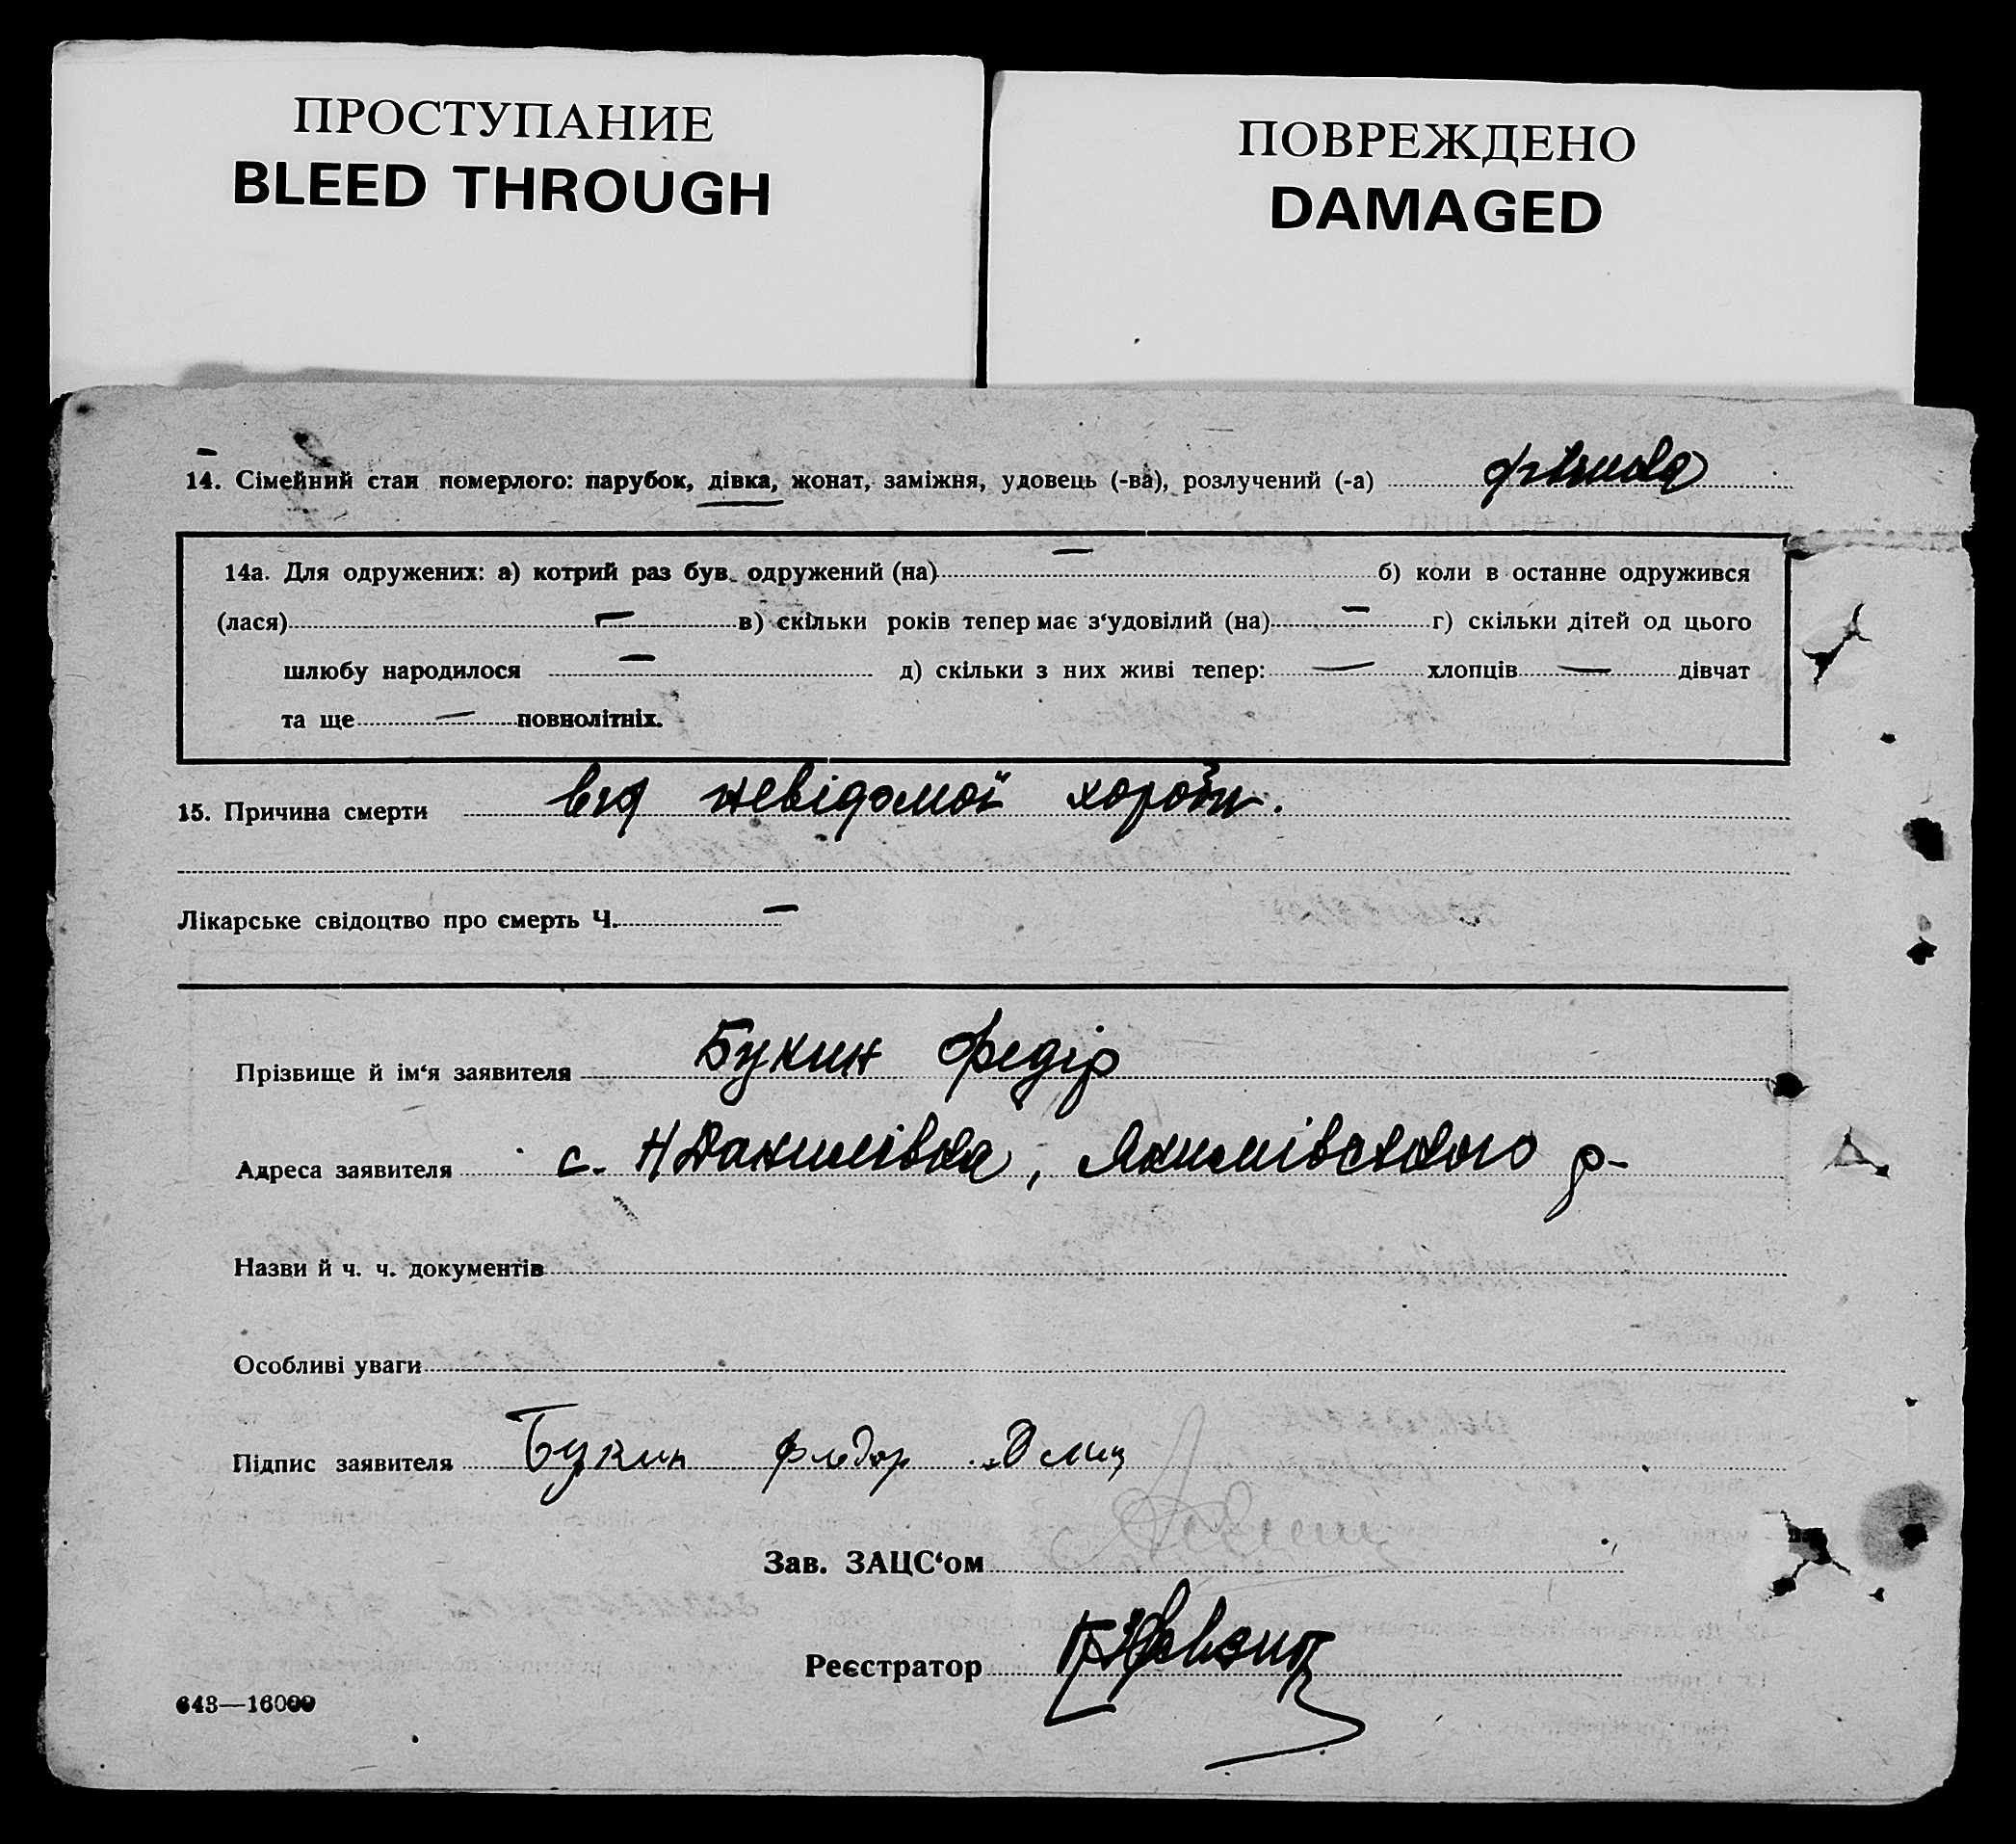 ПРОСТУПАНИЕ
BLEED THROUGH
ПОВРЕЖДЕНО
DAMAGED
14. Сімейний стан померлого: парубок, дівка, жонат, заміжня, удовець (-ва), розлучений (-а)
14а. Для одружених: а) котрий раз був одружений (на) — б) коли в останнє одружився
(лася) — в) скільки років тепер має з‘удовілий (на) — г) скільки дітей од цього
шлюбу народилося — д) скільки з них живі тепер: — хлопців — дівчат
та ще — повнолітніх.
15. Причина смерти від невідомої хороби.
Лікарське свідоцтво про смерть Ч. —
Прізвище й ім‘я заявителя Букин Федір
Адреса заявителя с. Н Данилівка, Якимівського р-
Назви й ч. ч. документів
Особливі уваги
Підпис заявителя Букин Федор
Зав. ЗАЦС‘ом
Реєстратор
643—16000